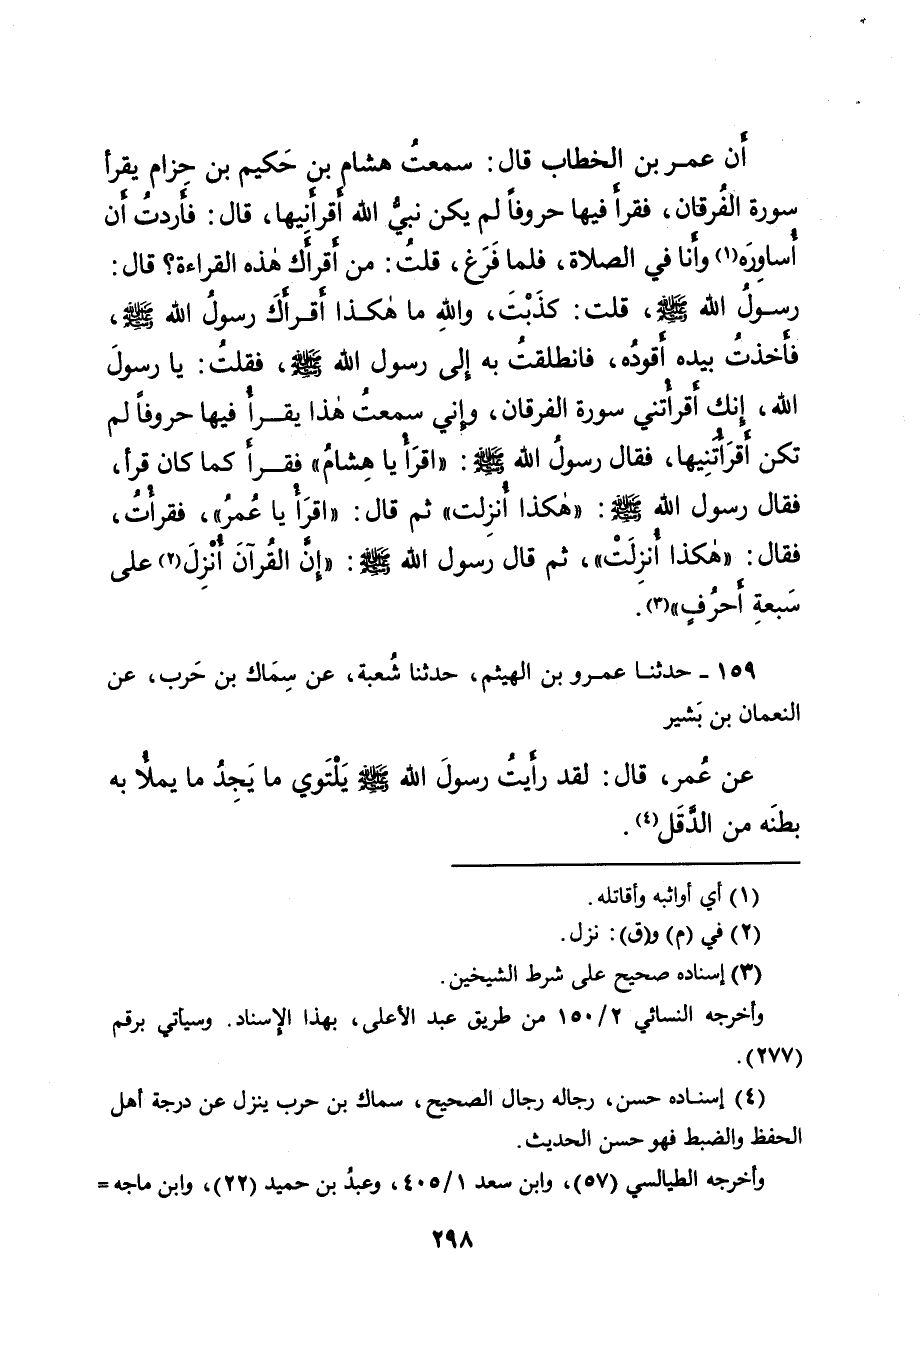 أَن عمـر بن الخطاب قال: سمعتُ هشام بن حَكيم بن حِزام يقرأُ
سورة الفُرقان، فقرأَ فيها حروفاً لم يكن نبيُّ الله أَقرأَنِيها، قال: فأَردتُ أَن
أُساوِرَه(١) وأَنا في الصلاة، فلما فَرَغ، قلتُ: من أَقرأَك هٰذه القراءة؟ قال:
رسـولُ الله ﷺ، قلت: كَذَبْتَ، واللهِ ما هٰكـذا أَقـرأَكَ رسولُ الله ﷺ،
فأَخذتُ بيده أَقودُه، فانطلقتُ به إلى رسول الله ﷺ، فقلتُ: يا رسولَ
الله، إِنك أَقرأْتني سورة الفرقان، وإِني سمعتُ هٰذا يقـرأُ فيها حروفاً لم
تكن أَقرَأْتَنِيها، فقال رسولُ الله ﷺ: «اقرَأْ يا هِشامُ» فقـرأَ كما كان قرأ،
فقال رسول الله ﷺ: «هٰكذا أُنزِلت» ثم قال: «اقرَأْ يا عُمرُ»، فقرأْتُ،
فقال: «هٰكذا أُنزِلَتْ»، ثم قال رسول الله ﷺ: «إِنَّ القُرآنَ أُنْزِلَ(٢) على
سَبعةِ أَحرُفٍ»(٣).
١٥٩ ـ حدثنـا عمـرو بن الهيثم، حدثنا شُعبة، عن سِمَاك بن حَرب، عن
النعمان بن بَشير
عن عُمر، قال: لقد رأَيتُ رسولَ الله ﷺ يَلْتَوي ما يَجِدُ ما يملأُ به
بطنَه من الدَّقَل(٤).
(١) أي أواثبه وأقاتله.
(٢) في (م) و(ق): نزل.
(٣) إسناده صحيح على شرط الشيخين.
وأخرجه النسائي ١٥٠/٢ من طريق عبد الأعلى، بهذا الإسناد. وسيأتي برقم
(٢٧٧).
(٤) إسنـاده حسن، رجاله رجال الصحيح، سماك بن حرب ينزل عن درجة أهل
الحفظ والضبط فهو حسن الحديث.
وأخرجه الطيالسي (٥٧)، وابن سعد ٤٠٥/١، وعبدُ بن حميد (٢٢)، وابن ماجه =
٢٩٨